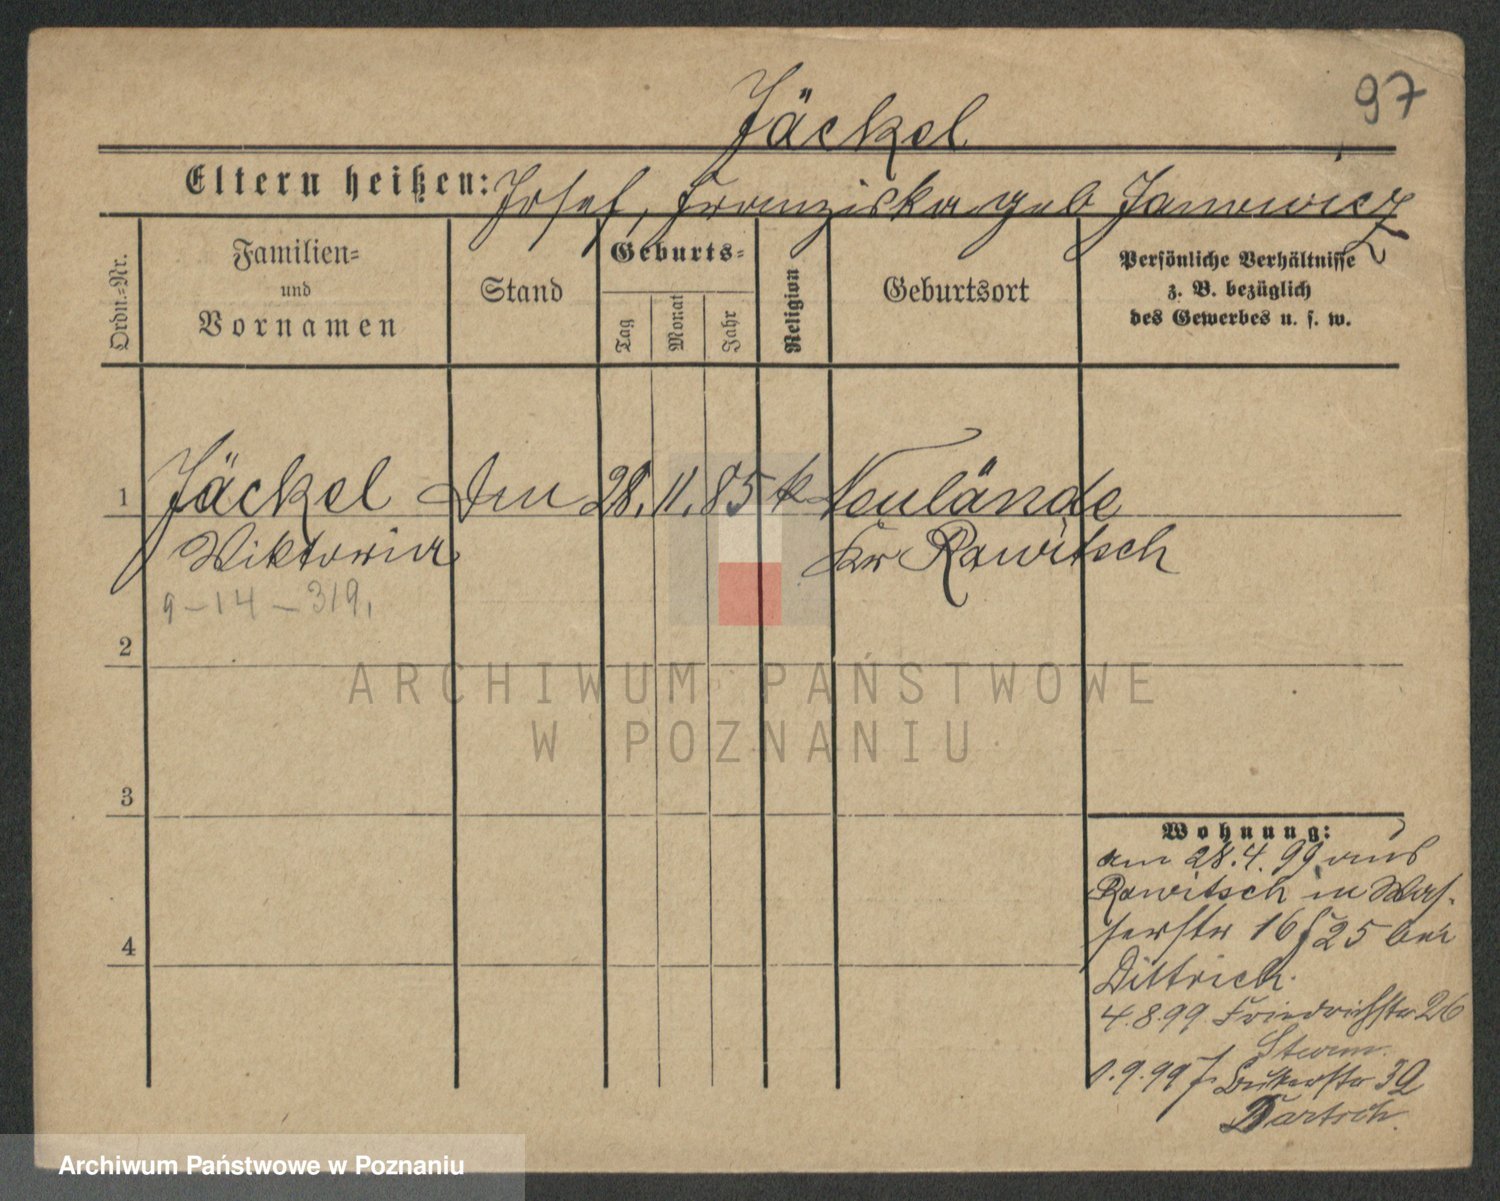 97
Jäckel
Eltern heißen: Josef, Franziska geb Janowicz
Ordn.-Nr.
Familien-
und
Vornamen
Stand
Geburts-
Tag
Monat
Jahr
Religion
Geburtsort
Persönliche Verhältnisse
z. B. bezüglich
des Gewerbes u. s. w.
1 Jäckel 28. 11. 85 k Neulände
Wiktoria Kr Rawitsch
9-14-319,
2
ARCHIWUM PAŃSTWOWE
W POZNANIU
3
4
Wohnung:
am 28.4.99 aus
Rawitsch in Was-
serstr 16 f 25 bei
Dittrich.
4.8.99 Friedrichstr 26
Sturm.
1.9.99 f 39
Bartsch.
Archiwum Państwowe w Poznaniu